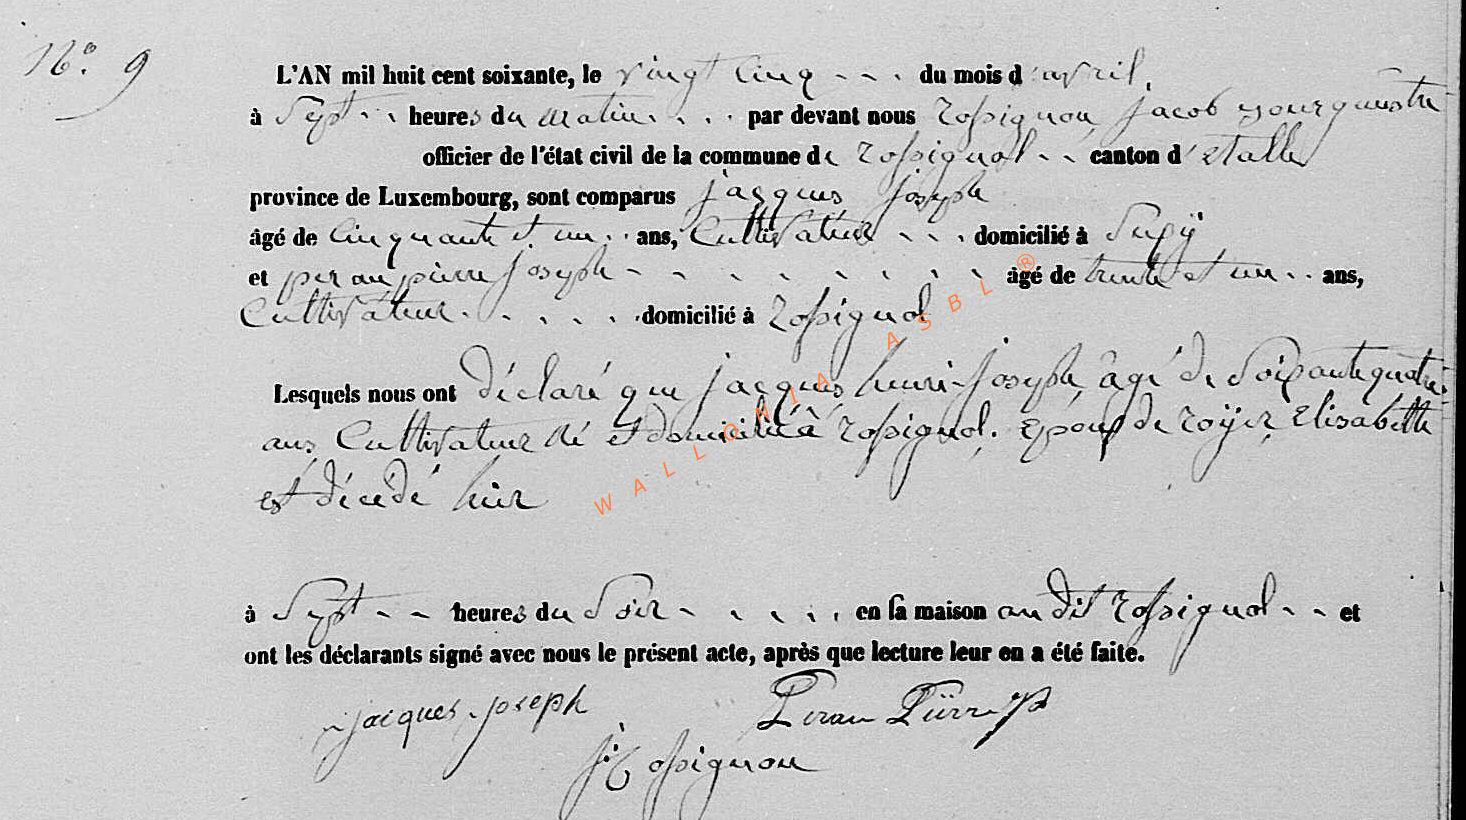 N° 9
L'AN mil huit cent soixante, le vingt cinq du mois d'avril
à Sept heures du matin par devant nous rossignon, jacob
officier de l'état civil de la commune de rossignol canton d'etalle
province de Luxembourg, sont comparus jacques joseph
âgé de Cinquante et un ans, Cultivateur domicilié à Suxÿ
et peran pierre joseph âgé de trente et un ans,
Cultivateur domicilié à rossignol
Lesquels nous ont déclaré que jacques henri-joseph, âgé de Soixante quatre
ans, Cultivateur né et domicilié à rossignol. Epoux de royer Elisabeth
est décédé hier
à Sept heures du Soir en sa maison au dit rossignol et
ont les déclarants signé avec nous le présent acte, après que lecture leur en a été faite.
jacques joseph Peran Pierre
j Rossignon
WALLONIA ASBL ®